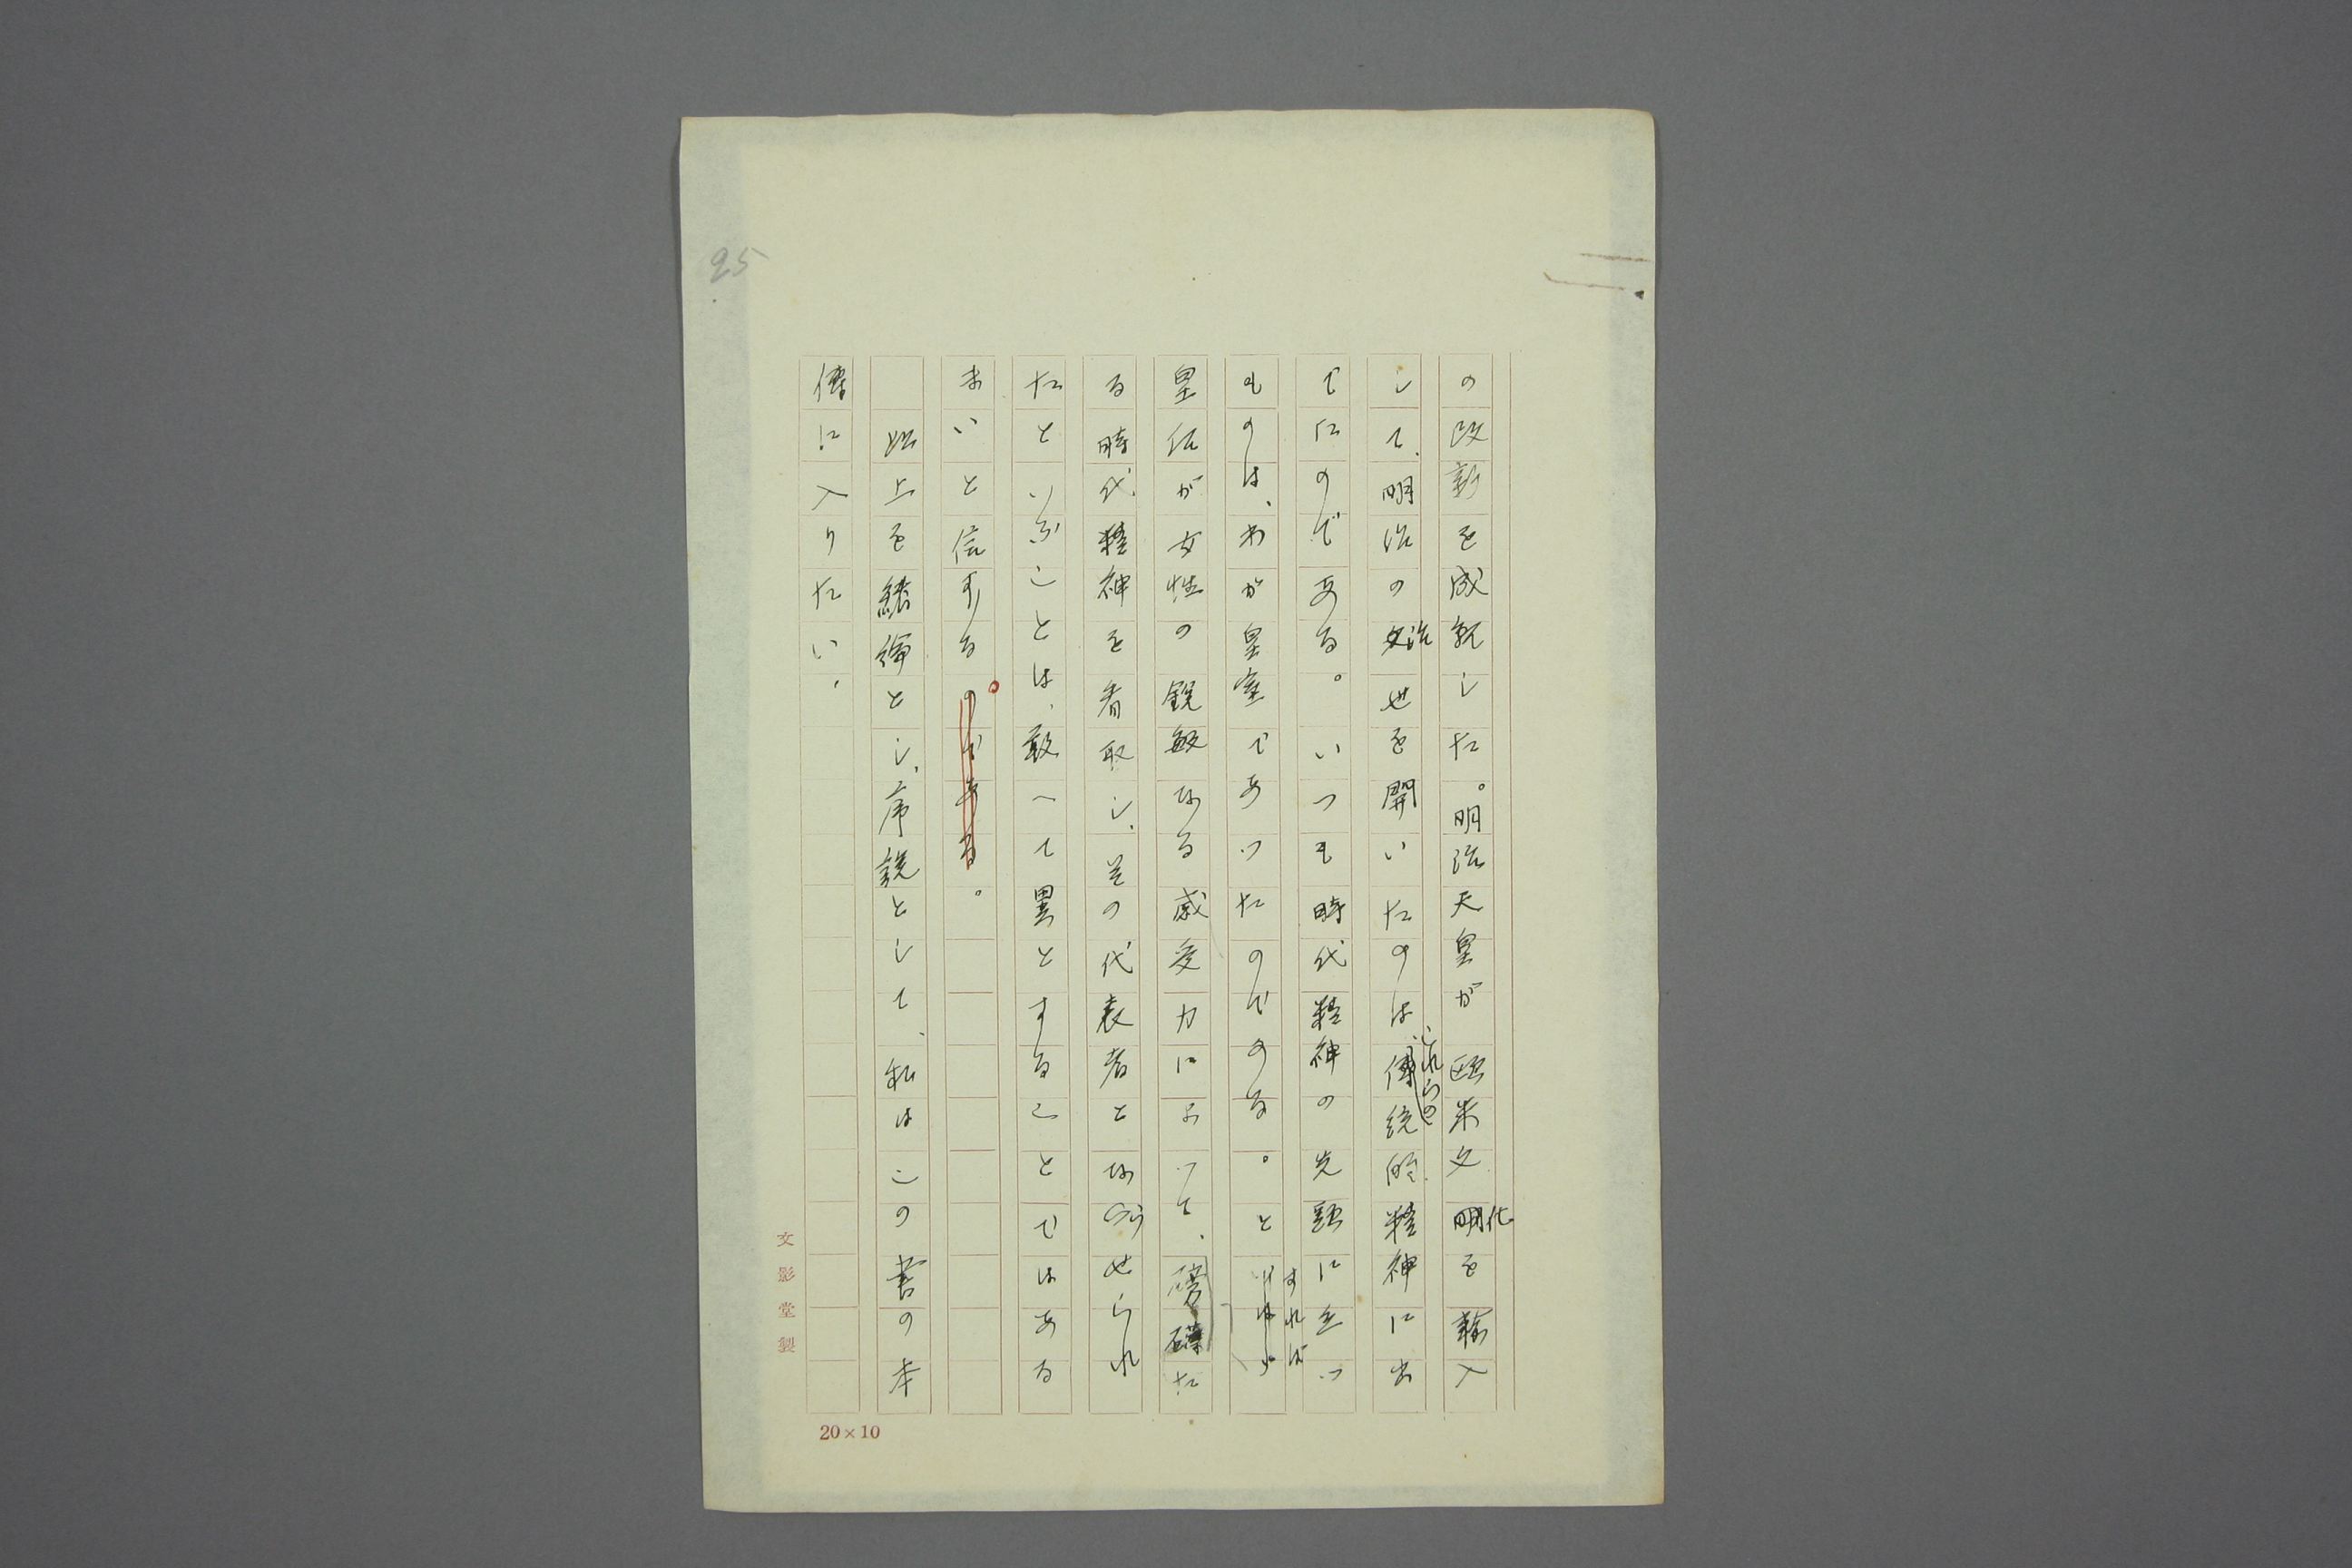 25
の改新を成就した。明治天皇が歐米文化を輸入
して、明治の治世を開いたのは、これらの傳統的精神に出
でたのである。いつも時代精神の先頭に立つ
ものは、わが皇室であつたのである。とすれば
皇后が女性の鋭敏なる感受力によつて、磅礴た
る時代精神を看取し、その代表者とならせられ
たといふことは、敢へて異とすることではある
まいと信ずる。のである。
以上を緒とし、序説として、私はこの書の本
傳に入りたい。
文影堂製
20×10